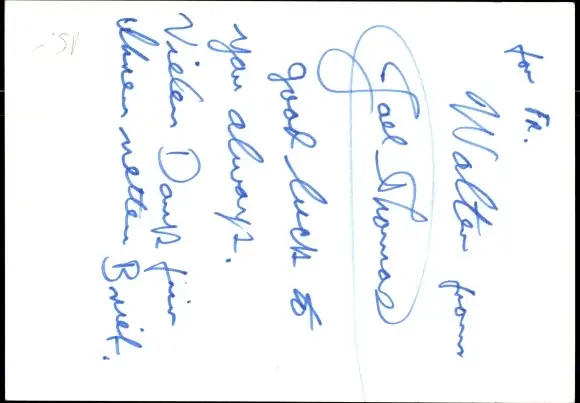 for FR.
Walter from
Jael Thomas
good luck to
you always.
Vielen Dank für
Ihren netten Brief.
15.-